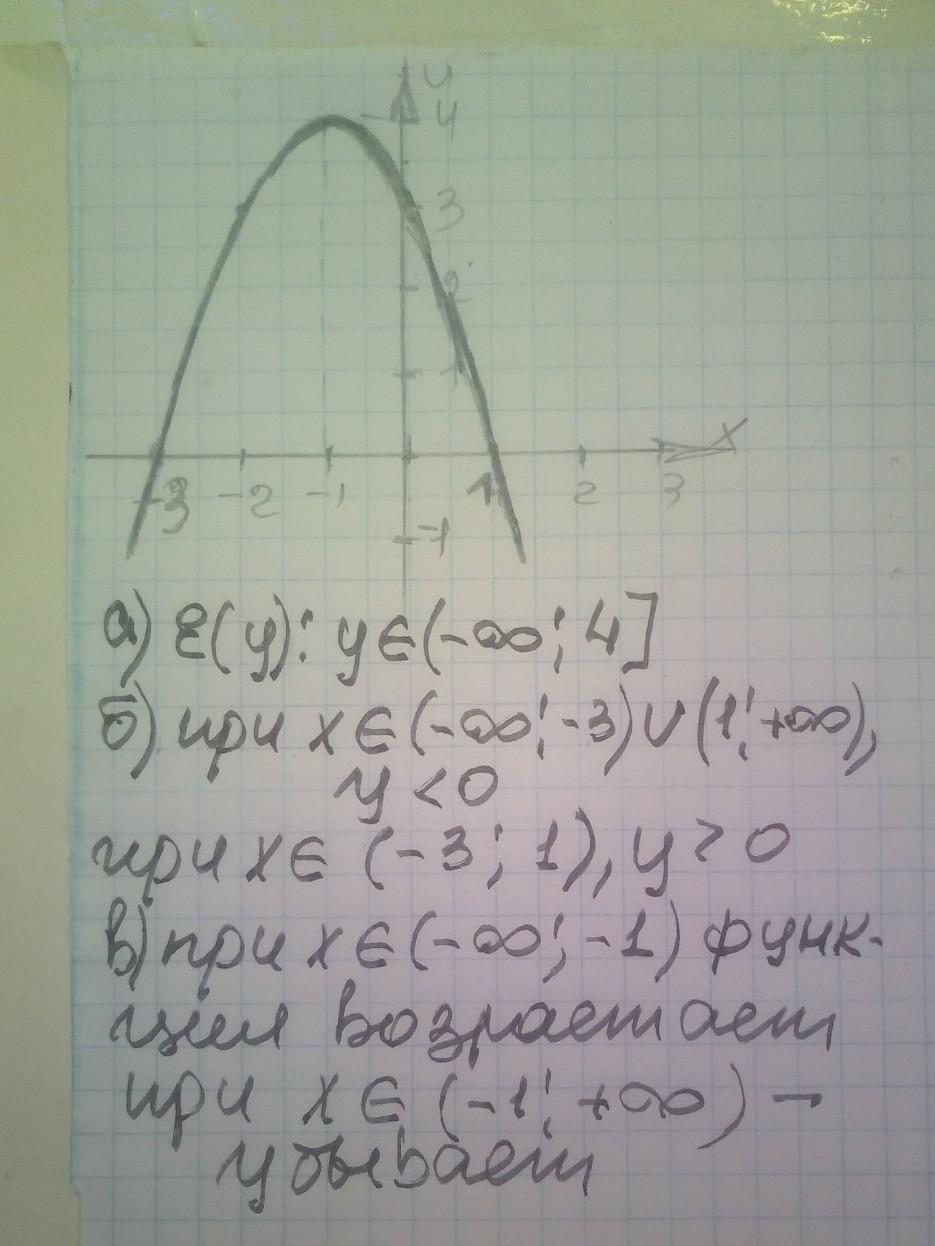 y
4
3
2
1
x
-3 -2 -1 1 2 3
-1
а) E(y): y∈(-∞; 4]
б) при x∈(-∞;-3)∪(1;+∞),
y<0
при x∈ (-3; 1), y>0
в) при x∈(-∞; -1) функ-
ция возрастает
при x∈(-1; +∞) –
убывает